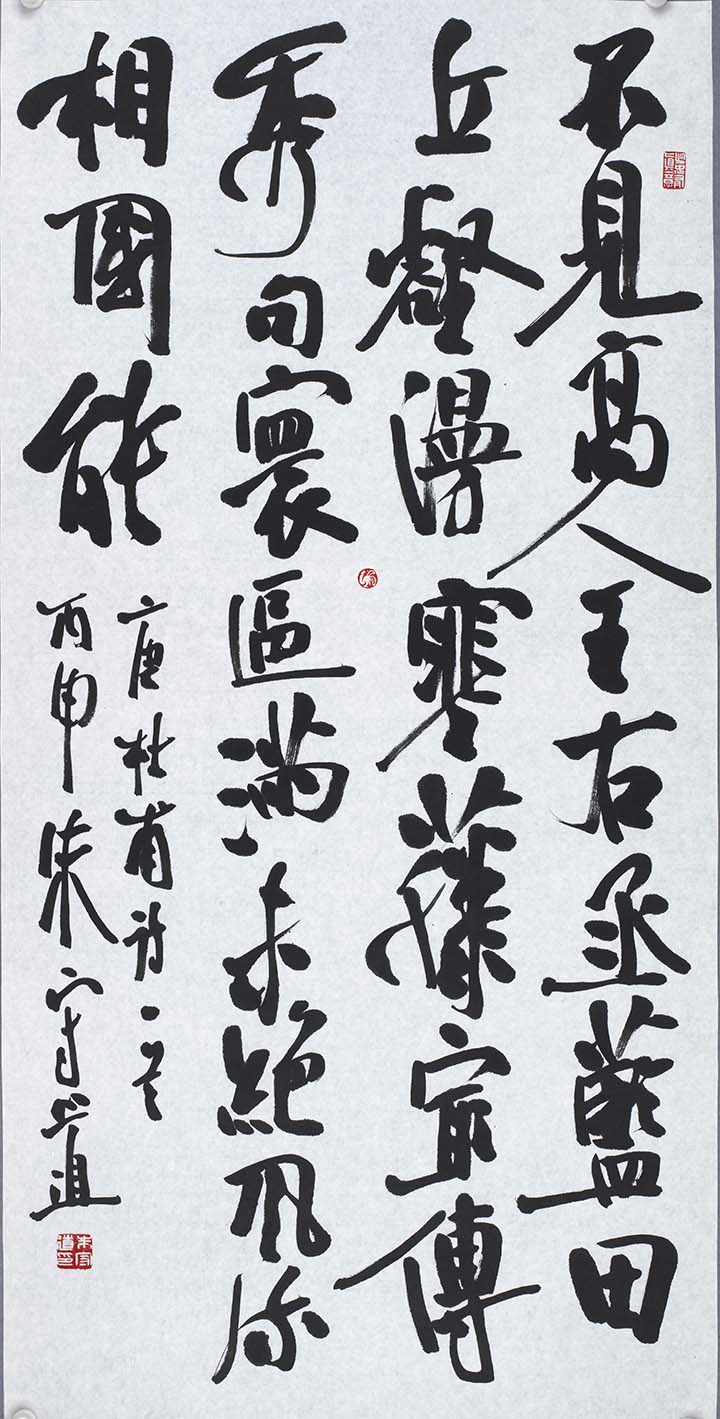 不見高人王右丞藍田
丘壑漫寒藤最傳
秀句寰區滿未絕風流
相國能
唐杜甫诗一首
丙申朱守道
朱守道印